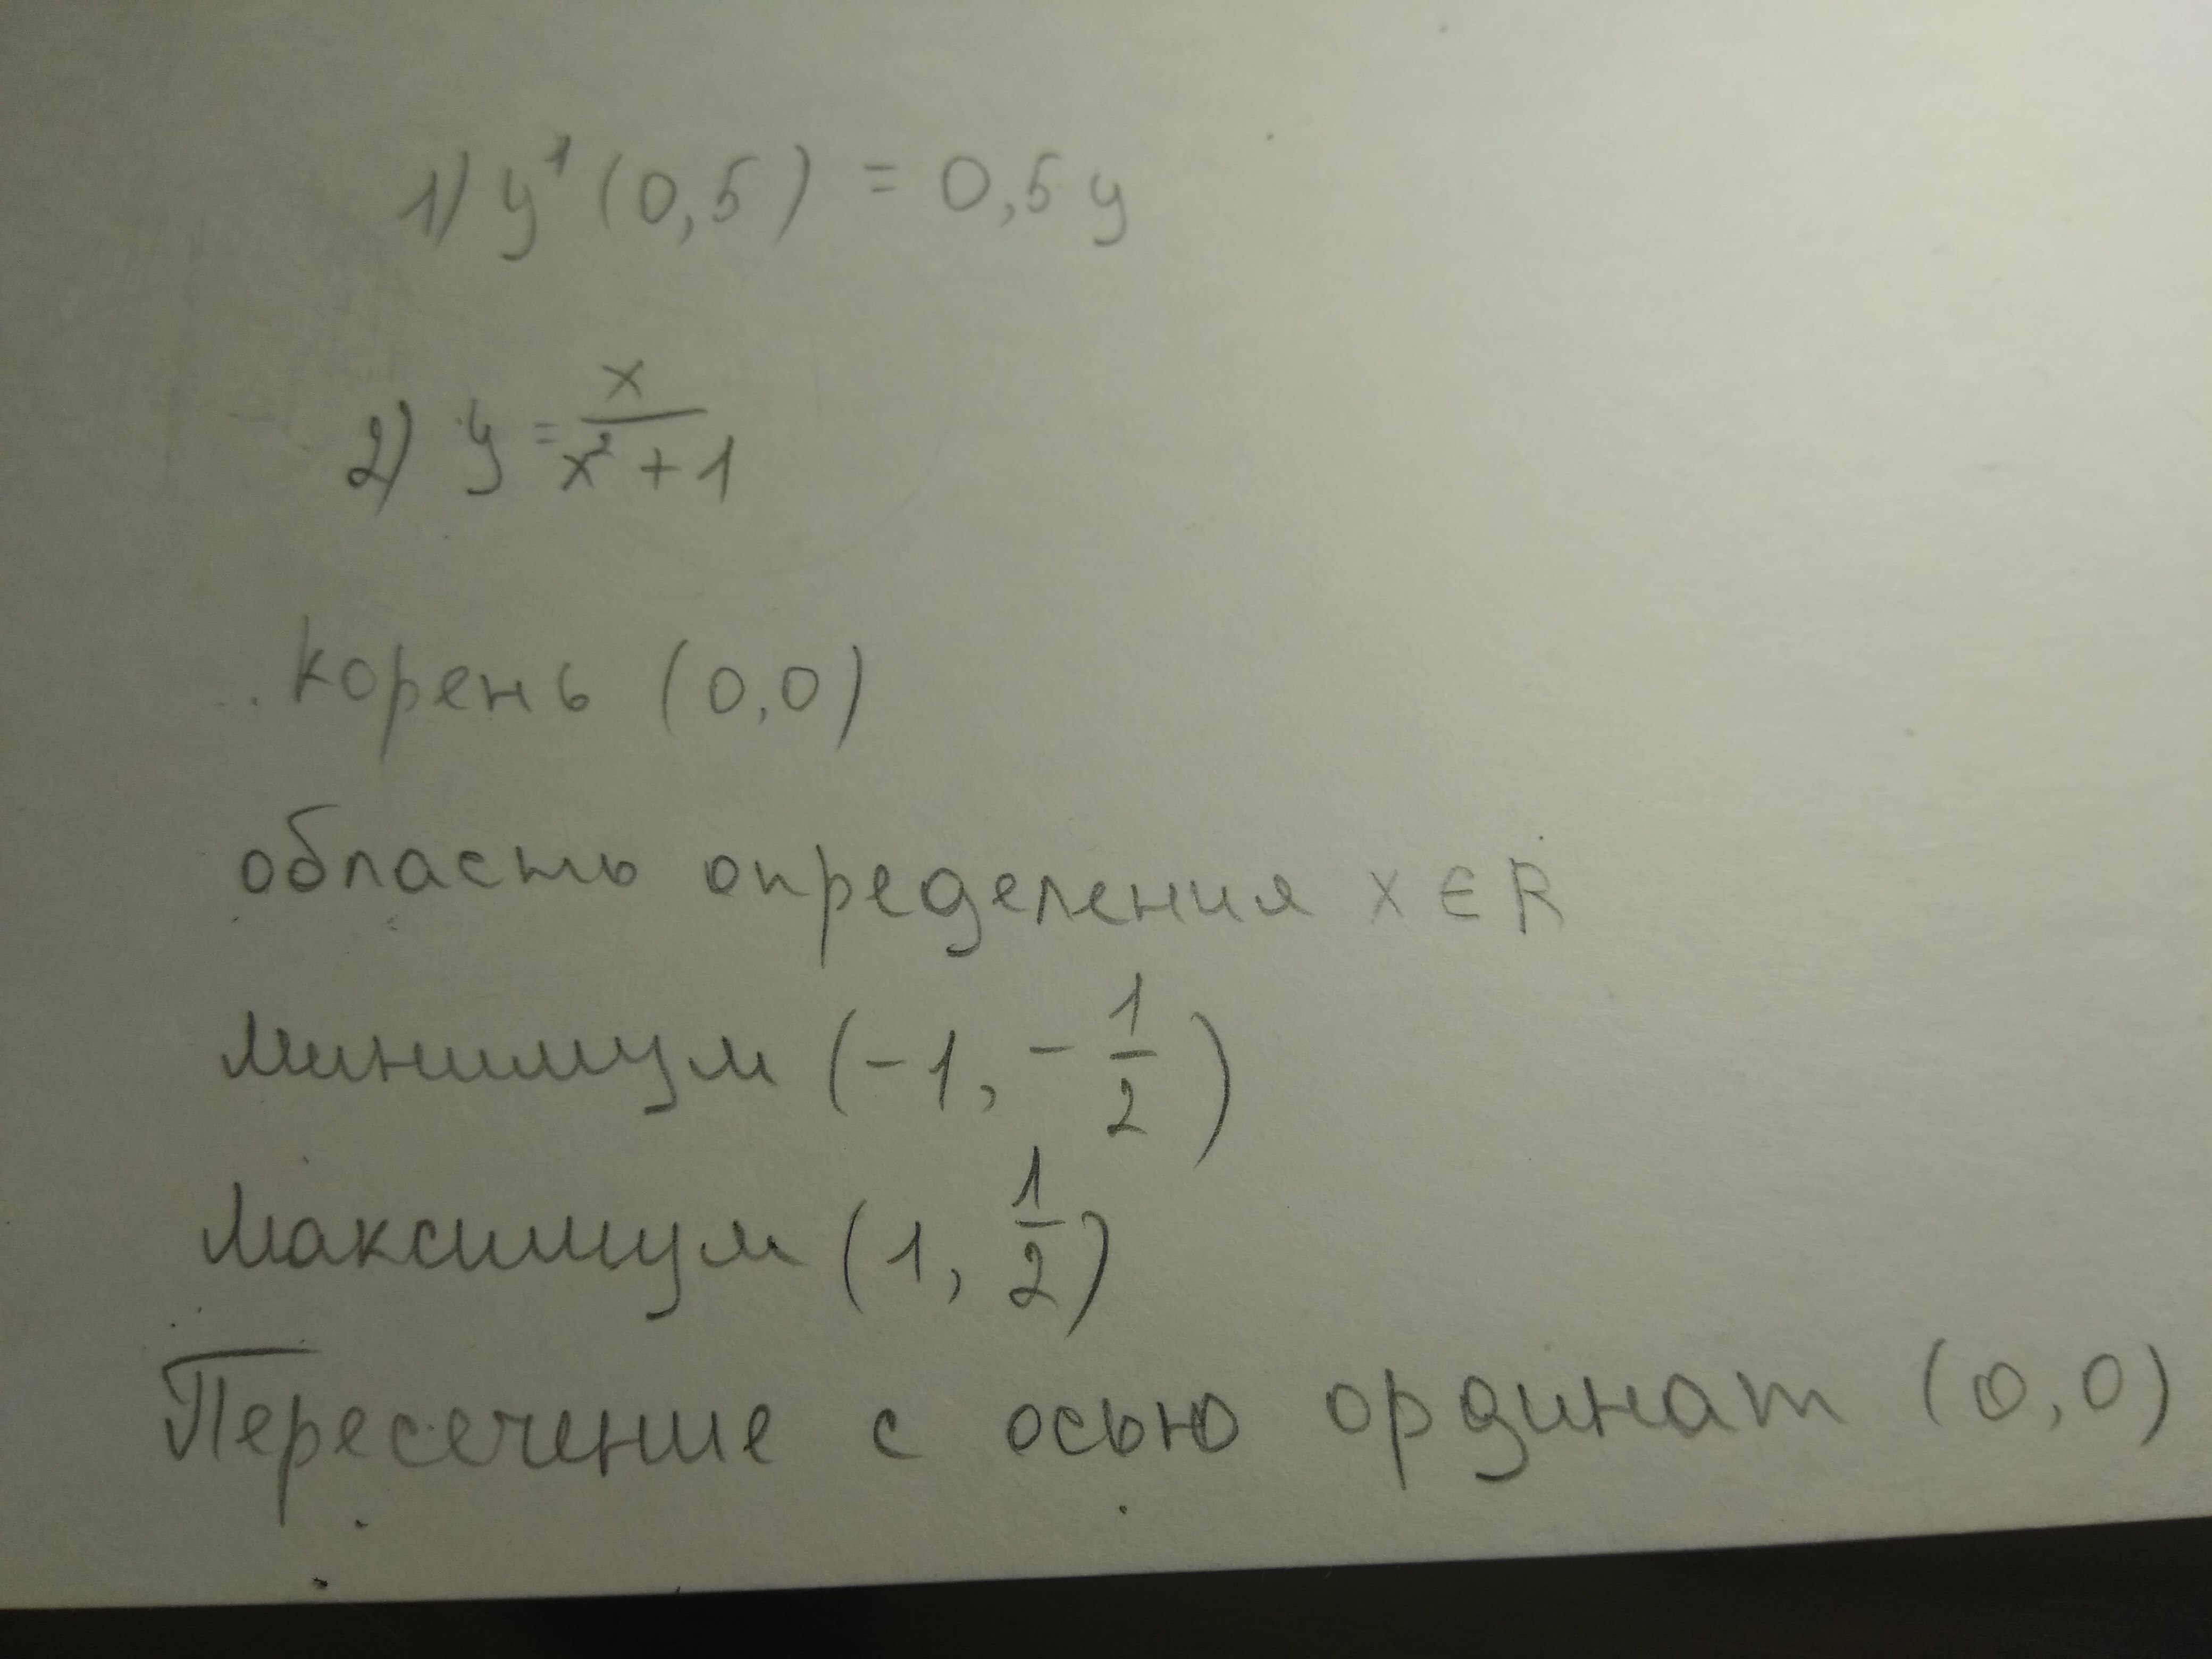 1) y¹(0,5) = 0,5y
2) y = x/(x²+1)
корень (0,0)
область определения x ∈ R
минимум (-1, -1/2)
Максимум (1, 1/2)
Пересечение с осью ординат (0,0)